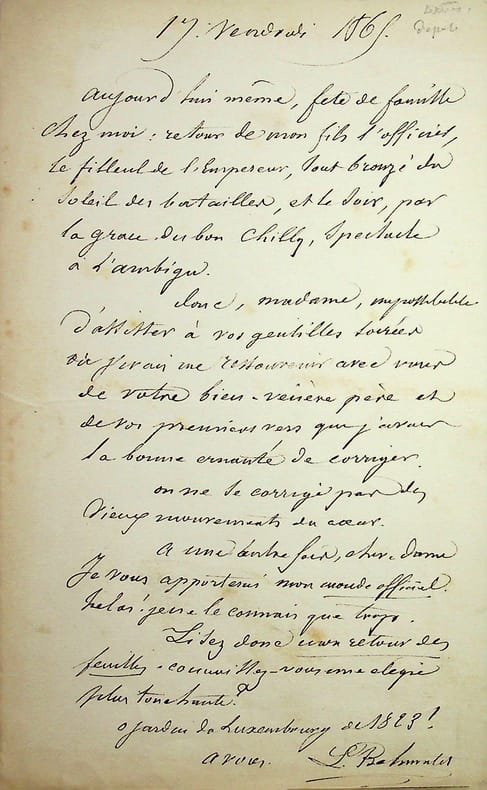 17. Vendredi 1865.
aujourd'hui même, fete de famille
chez moi : retour de mon fils l'officier,
le filleul de l'Empereur, tout bronzé du
soleil des batailles, et le soir, par
la grace du bon Chilly, spectacle
à l'ambigu.
donc, madame, impossible
d'assister à vos gentilles soirées
où j'irais me ressouvenir avec vous
de votre bien-vénéré père et
de vos premiers vers que j'avais
la bonne cruauté de corriger.
on ne se corrige pas des
vieux mouvements du cœur.
a une autre fois, chere dame
Je vous apporterai mon monde officiel.
helas! je ne le connais que trop.
Lisez donc mon retour des
feuilles - connaissez-vous une elegie
plus touchante?
o jardin du Luxembourg de 1823!
a vous. L. Belmontet